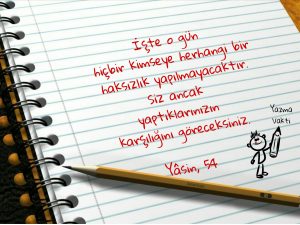 İşte o gün
hiçbir kimseye herhangi bir
haksızlık yapılmayacaktır.
Siz ancak
yaptıklarınızın
karşılığını göreceksiniz.
Yâsin, 54
Yazma
Vakti